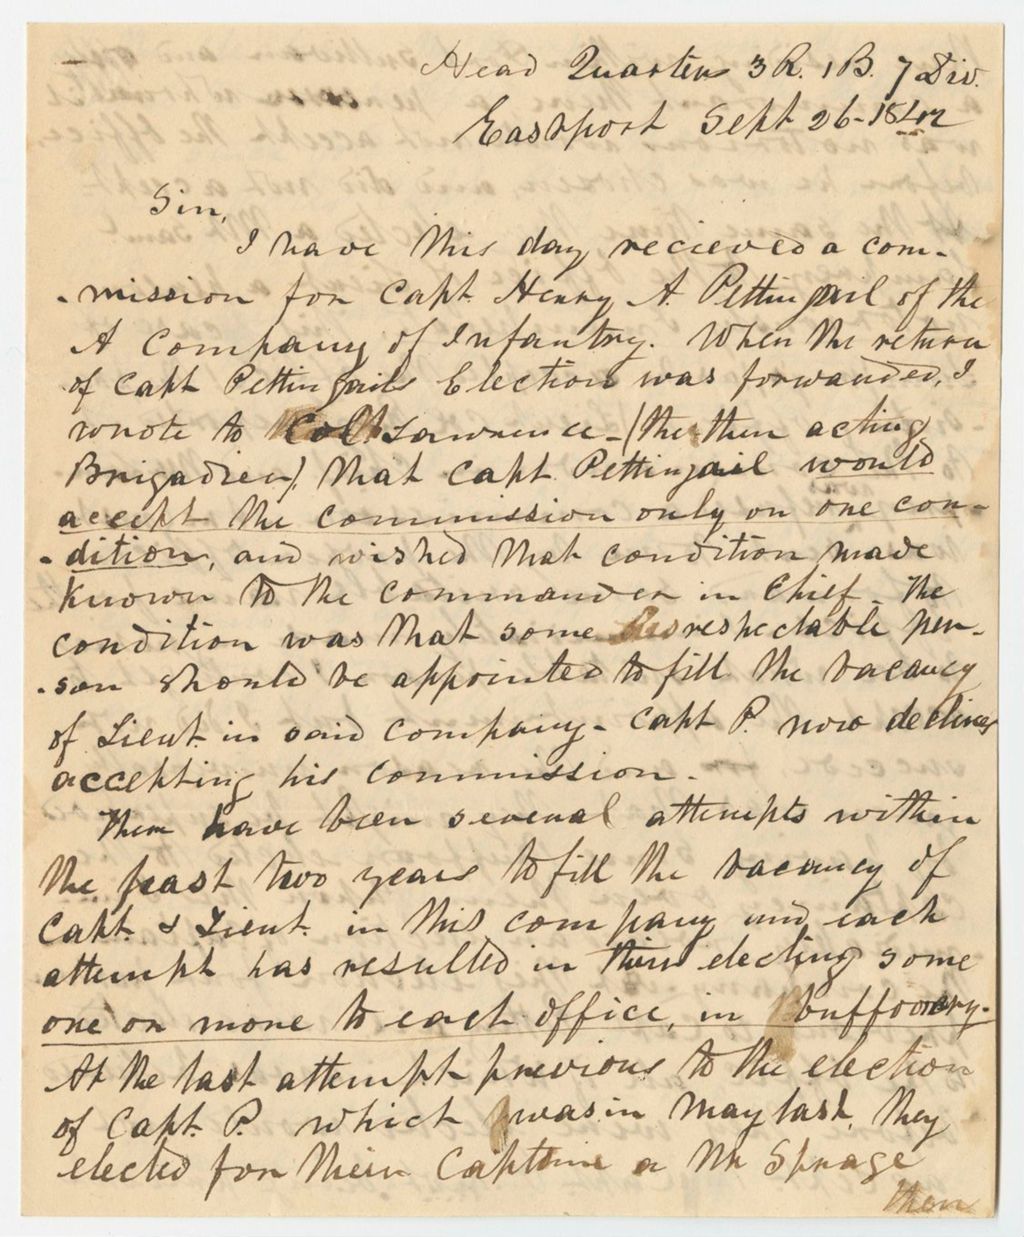 Head Quarters 3 R. 1 B. 7 Div.
Eastport Sept 26- 1842
Sir,
I have this day recieved a com-
-mission for Capt Henry A. Pettingail of the
A Company of Infantry. When the return
of Capt Pettingails Election was forwarded, I
wrote to Col Lawrence - (the then acting
Brigadier), that Capt Pettingail would
accept the commission only on one con-
-dition, and wished that condition made
known to the commander in Chief - The
condition was that some respectable per-
-son should be appointed to fill the vacancy
of Lieut. in said company - Capt P. now declines
accepting his commission -
There have been several attempts within
the past two years to fill the vacancy of
Capt. & Lieut. in this company and each
attempt has resulted in their electing some
one or more to each office, in Buffoonery -
At the last attempt previous to the election
of Capt. P. which was in May last, they
elected for their Captain a Mr Sprage
then